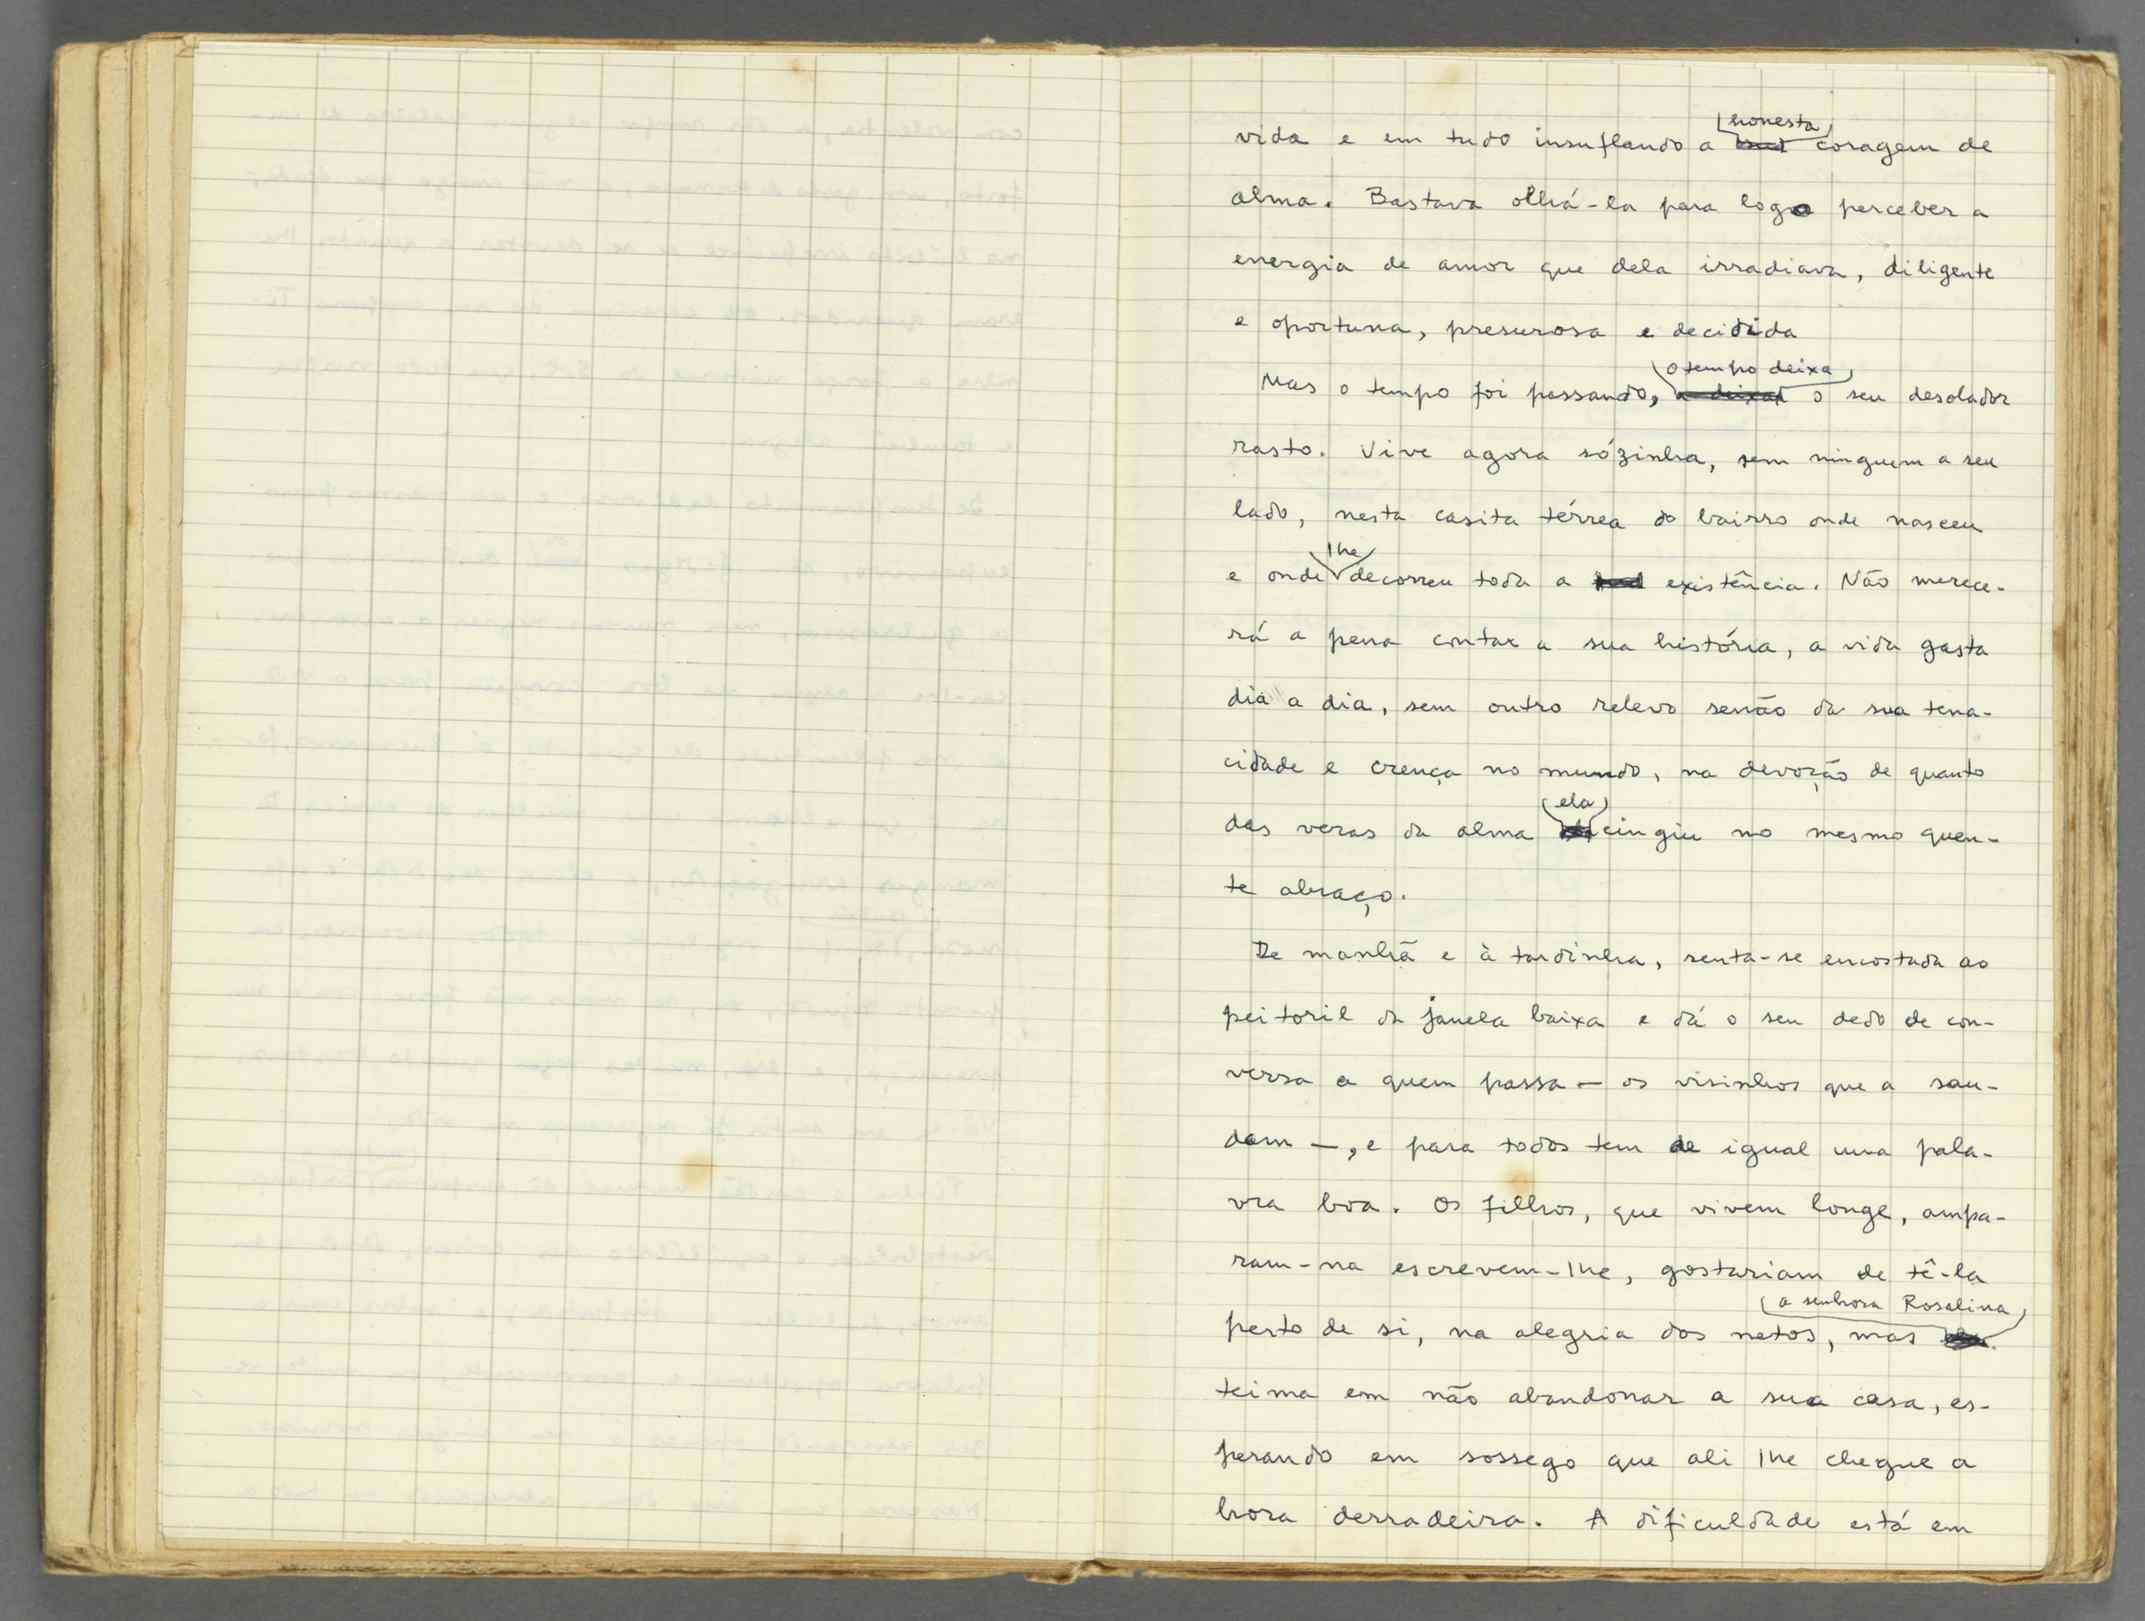 vida e em tudo insuflando a honesta coragem de
alma. Bastava olhá-la para logo perceber a
energia de amor que dela irradiava, diligente
e oportuna, presurosa e decidida
Mas o tempo foi passando, o tempo deixa o seu desolador
rasto. Vive agora sózinha, sem ninguem a seu
lado, nesta casita térrea do bairro onde nasceu
e onde lhe decorreu toda a existência. Não merece-
rá a pena contar a sua história, a vida gasta
dia a dia, sem outro relevo senão da sua tena-
cidade e crença no mundo, na devoção de quanto
das veras da alma ela cingiu no mesmo quen-
te abraço.
De manhã e à tardinha, senta-se encostada ao
peitoril da janela baixa e dá o seu dedo de con-
versa a quem passa — os visinhos que a sau-
dam —, e para todos tem de igual uma pala-
vra boa. Os filhos, que vivem longe, ampa-
ram-na escrevem-lhe, gostariam de tê-la
perto de si, na alegria dos netos, mas a senhora Rosalina
teima em não abandonar a sua casa, es-
perando em sossego que ali lhe chegue a
hora derradeira. A dificuldade está em